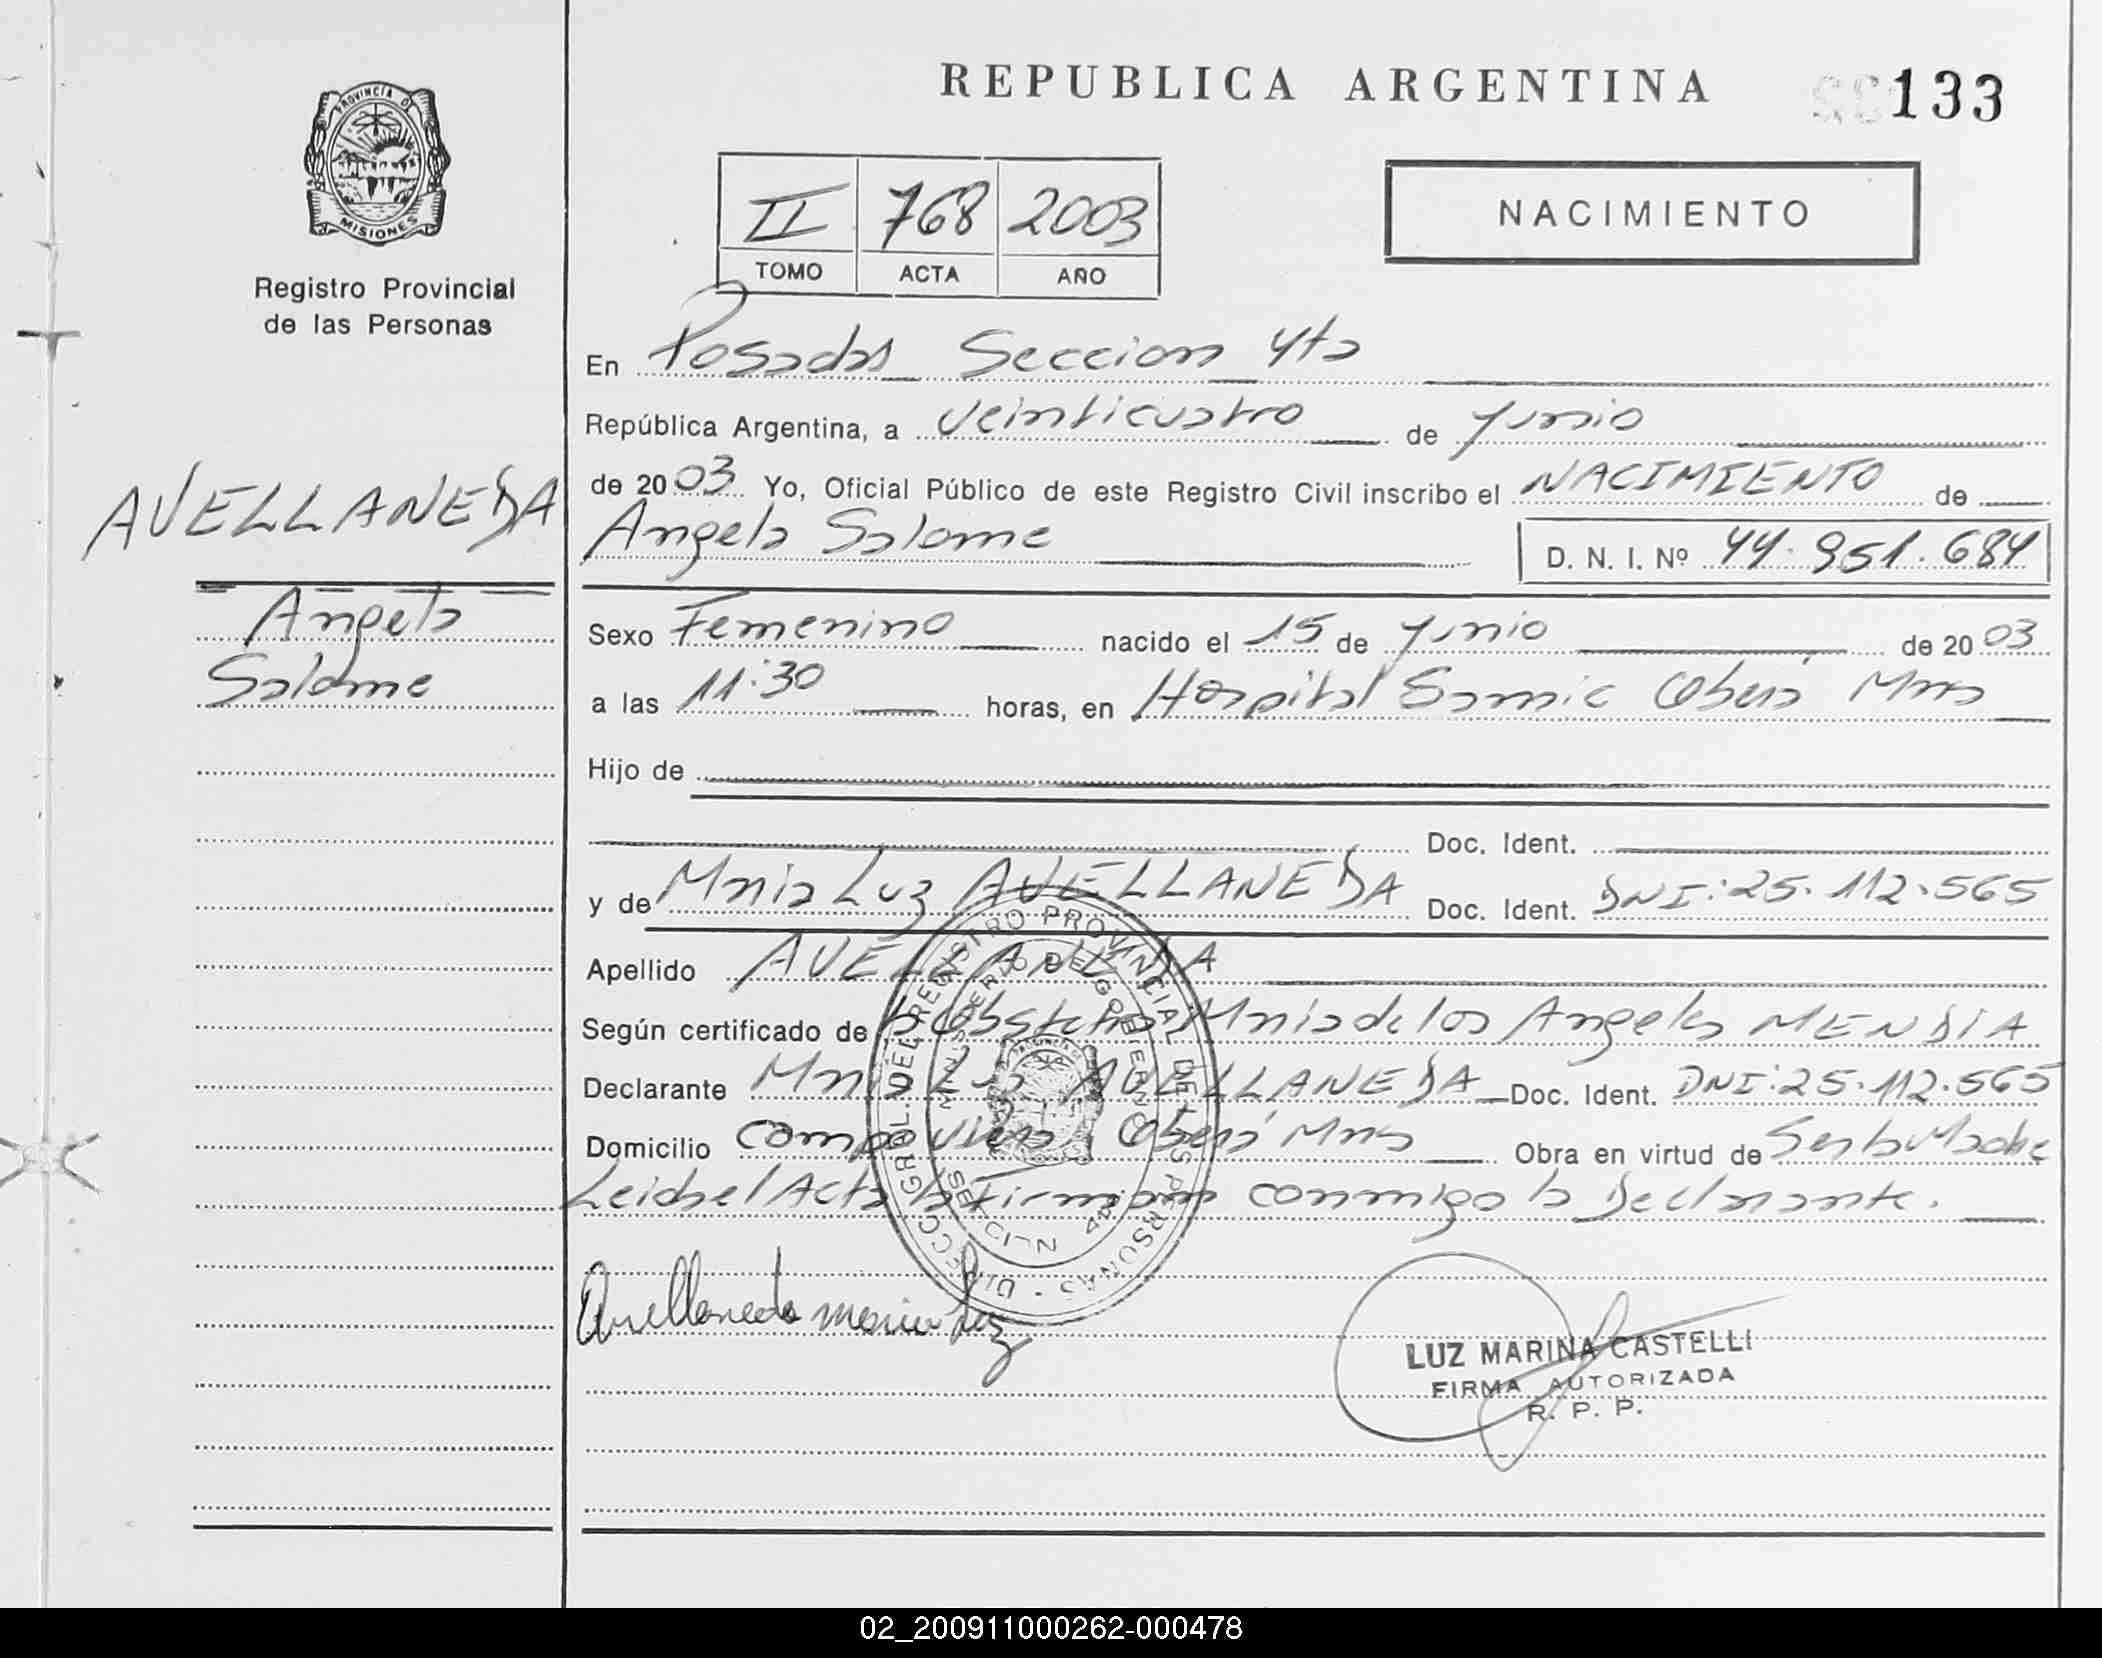 REPUBLICA ARGENTINA
133
PROVINCIA D
MISIONES
Registro Provincial
de las Personas
II 768 2003
TOMO ACTA AÑO
NACIMIENTO
En Posadas Seccion 4ta
República Argentina, a veinticuatro de Junio
de 2003 Yo, Oficial Público de este Registro Civil inscribo el NACIMIENTO de
AVELLANEDA
Angela
Salome
Angela Salome D. N. I. Nº 44.951.684
Sexo Femenino nacido el 15 de Junio de 2003
a las 11:30 horas, en Hospital Samic Oberá Mnes
Hijo de
Doc. Ident.
y de Maria Luz AVELLANEDA Doc. Ident. DNI: 25.112.565
Apellido AVELLANEDA
Según certificado de Obstetra Maria de los Angeles MENDIA
Declarante Maria Luz AVELLANEDA Doc. Ident. DNI: 25.112.565
Domicilio Campo Viera, Oberá Mnes Obra en virtud de Ser la Madre
Leida el Acta la Firman conmigo la Declarante.
DIRECC. GRAL. DEL REGISTRO PROVINCIAL DE LAS PERSONAS
MINISTERIO DE GOBIERNO
Avellaneda maria Luz
LUZ MARINA CASTELLI
FIRMA AUTORIZADA
R. P. P.
02_200911000262-000478